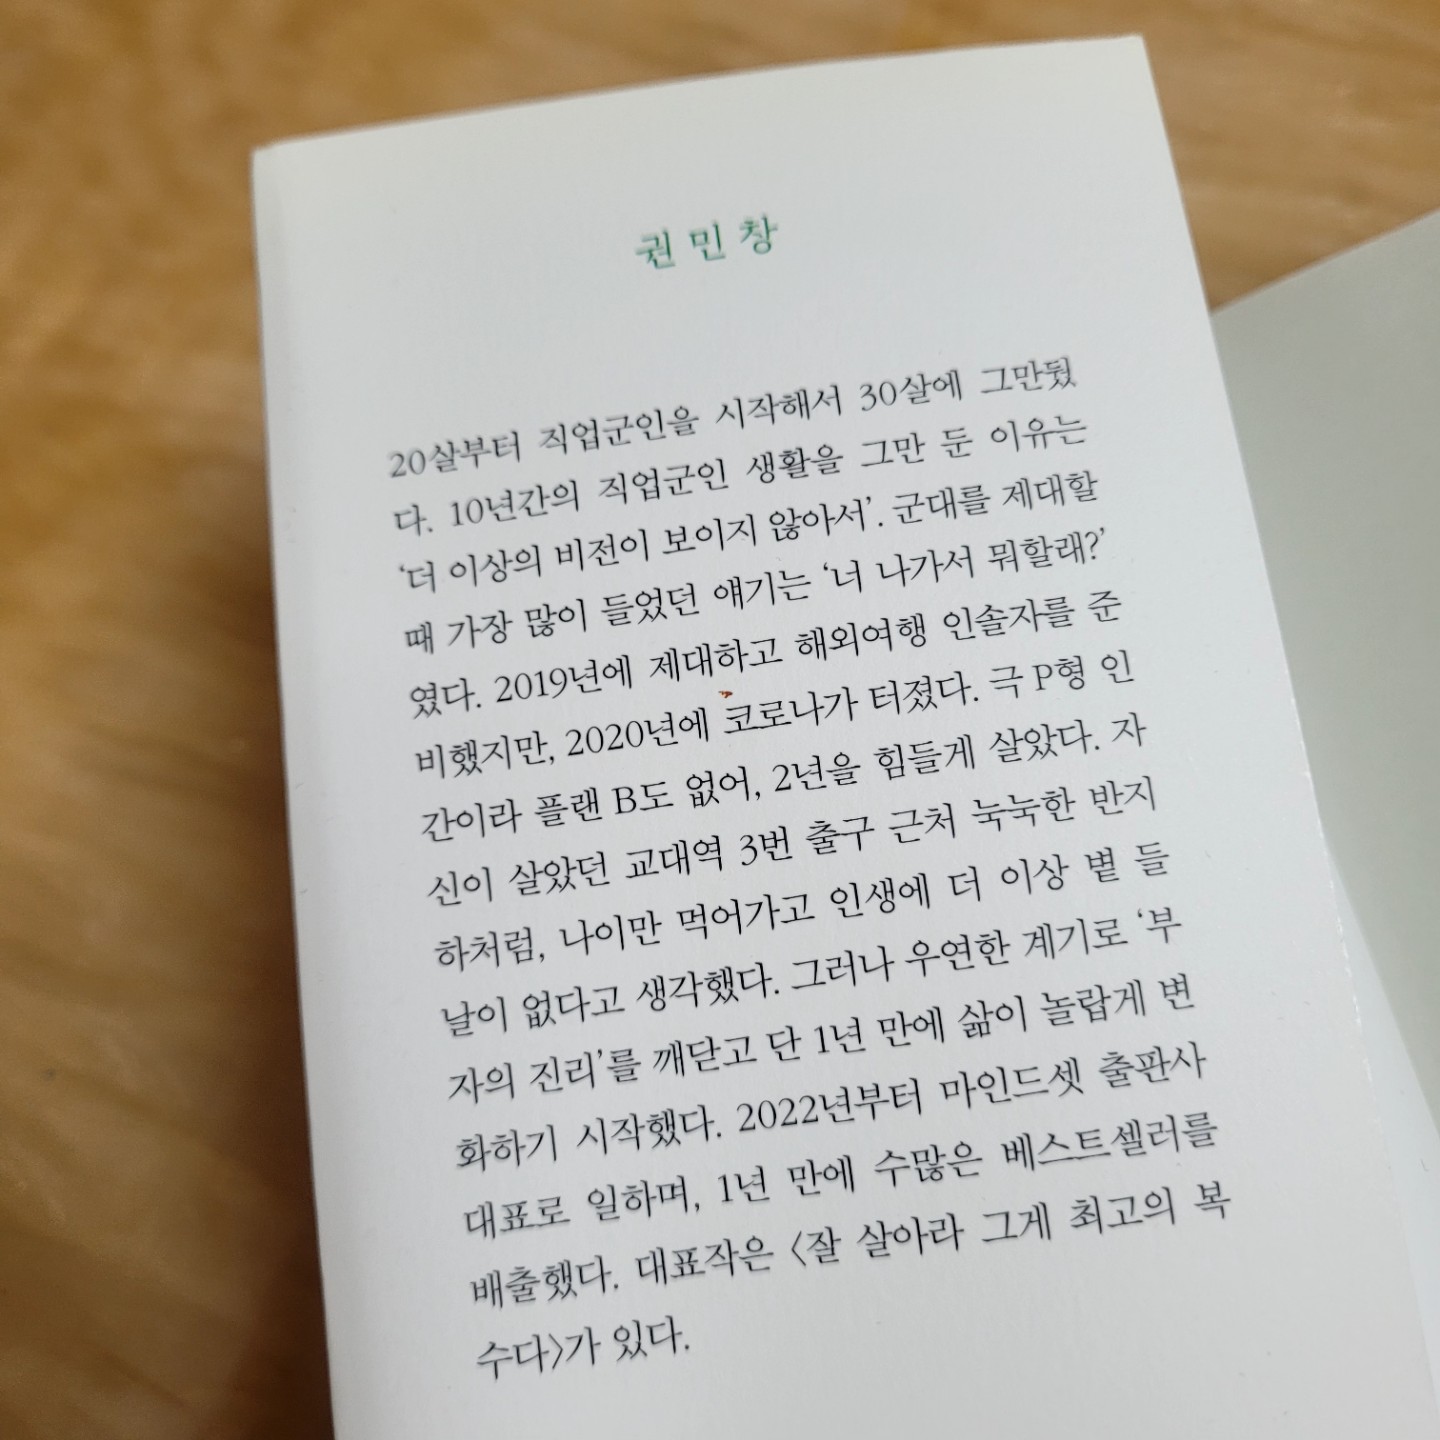 권민창
20살부터 직업군인을 시작해서 30살에 그만뒀
다. 10년간의 직업군인 생활을 그만 둔 이유는
‘더 이상의 비전이 보이지 않아서’. 군대를 제대할
때 가장 많이 들었던 얘기는 ‘너 나가서 뭐할래?’
였다. 2019년에 제대하고 해외여행 인솔자를 준
비했지만, 2020년에 코로나가 터졌다. 극 P형 인
간이라 플랜 B도 없어, 2년을 힘들게 살았다. 자
신이 살았던 교대역 3번 출구 근처 눅눅한 반지
하처럼, 나이만 먹어가고 인생에 더 이상 볕 들
날이 없다고 생각했다. 그러나 우연한 계기로 ‘부
자의 진리’를 깨닫고 단 1년 만에 삶이 놀랍게 변
화하기 시작했다. 2022년부터 마인드셋 출판사
대표로 일하며, 1년 만에 수많은 베스트셀러를
배출했다. 대표작은 〈잘 살아라 그게 최고의 복
수다〉가 있다.